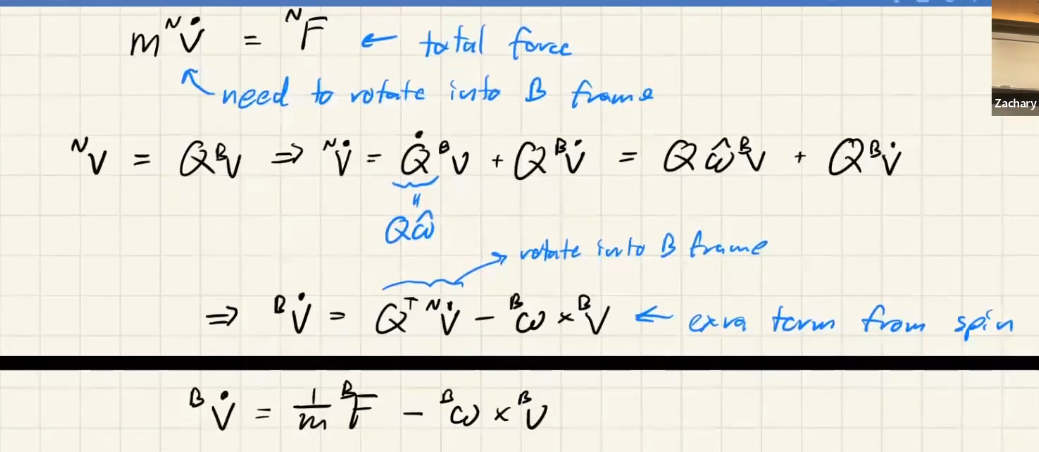 m ᴺv̇ = ᴺF ← total force
need to rotate into B frame
Zachary
ᴺv = Q ᴮv ⇒ ᴺv̇ = Q̇ ᴮv + Q ᴮv̇ = Q ω̂ ᴮv + Q ᴮv̇
"
Qω̂
rotate into B frame
⇒ ᴮv̇ = Qᵀ ᴺv̇ − ᴮω × ᴮv ← exra term from spin
ᴮv̇ = 1/m ᴮF − ᴮω × ᴮv